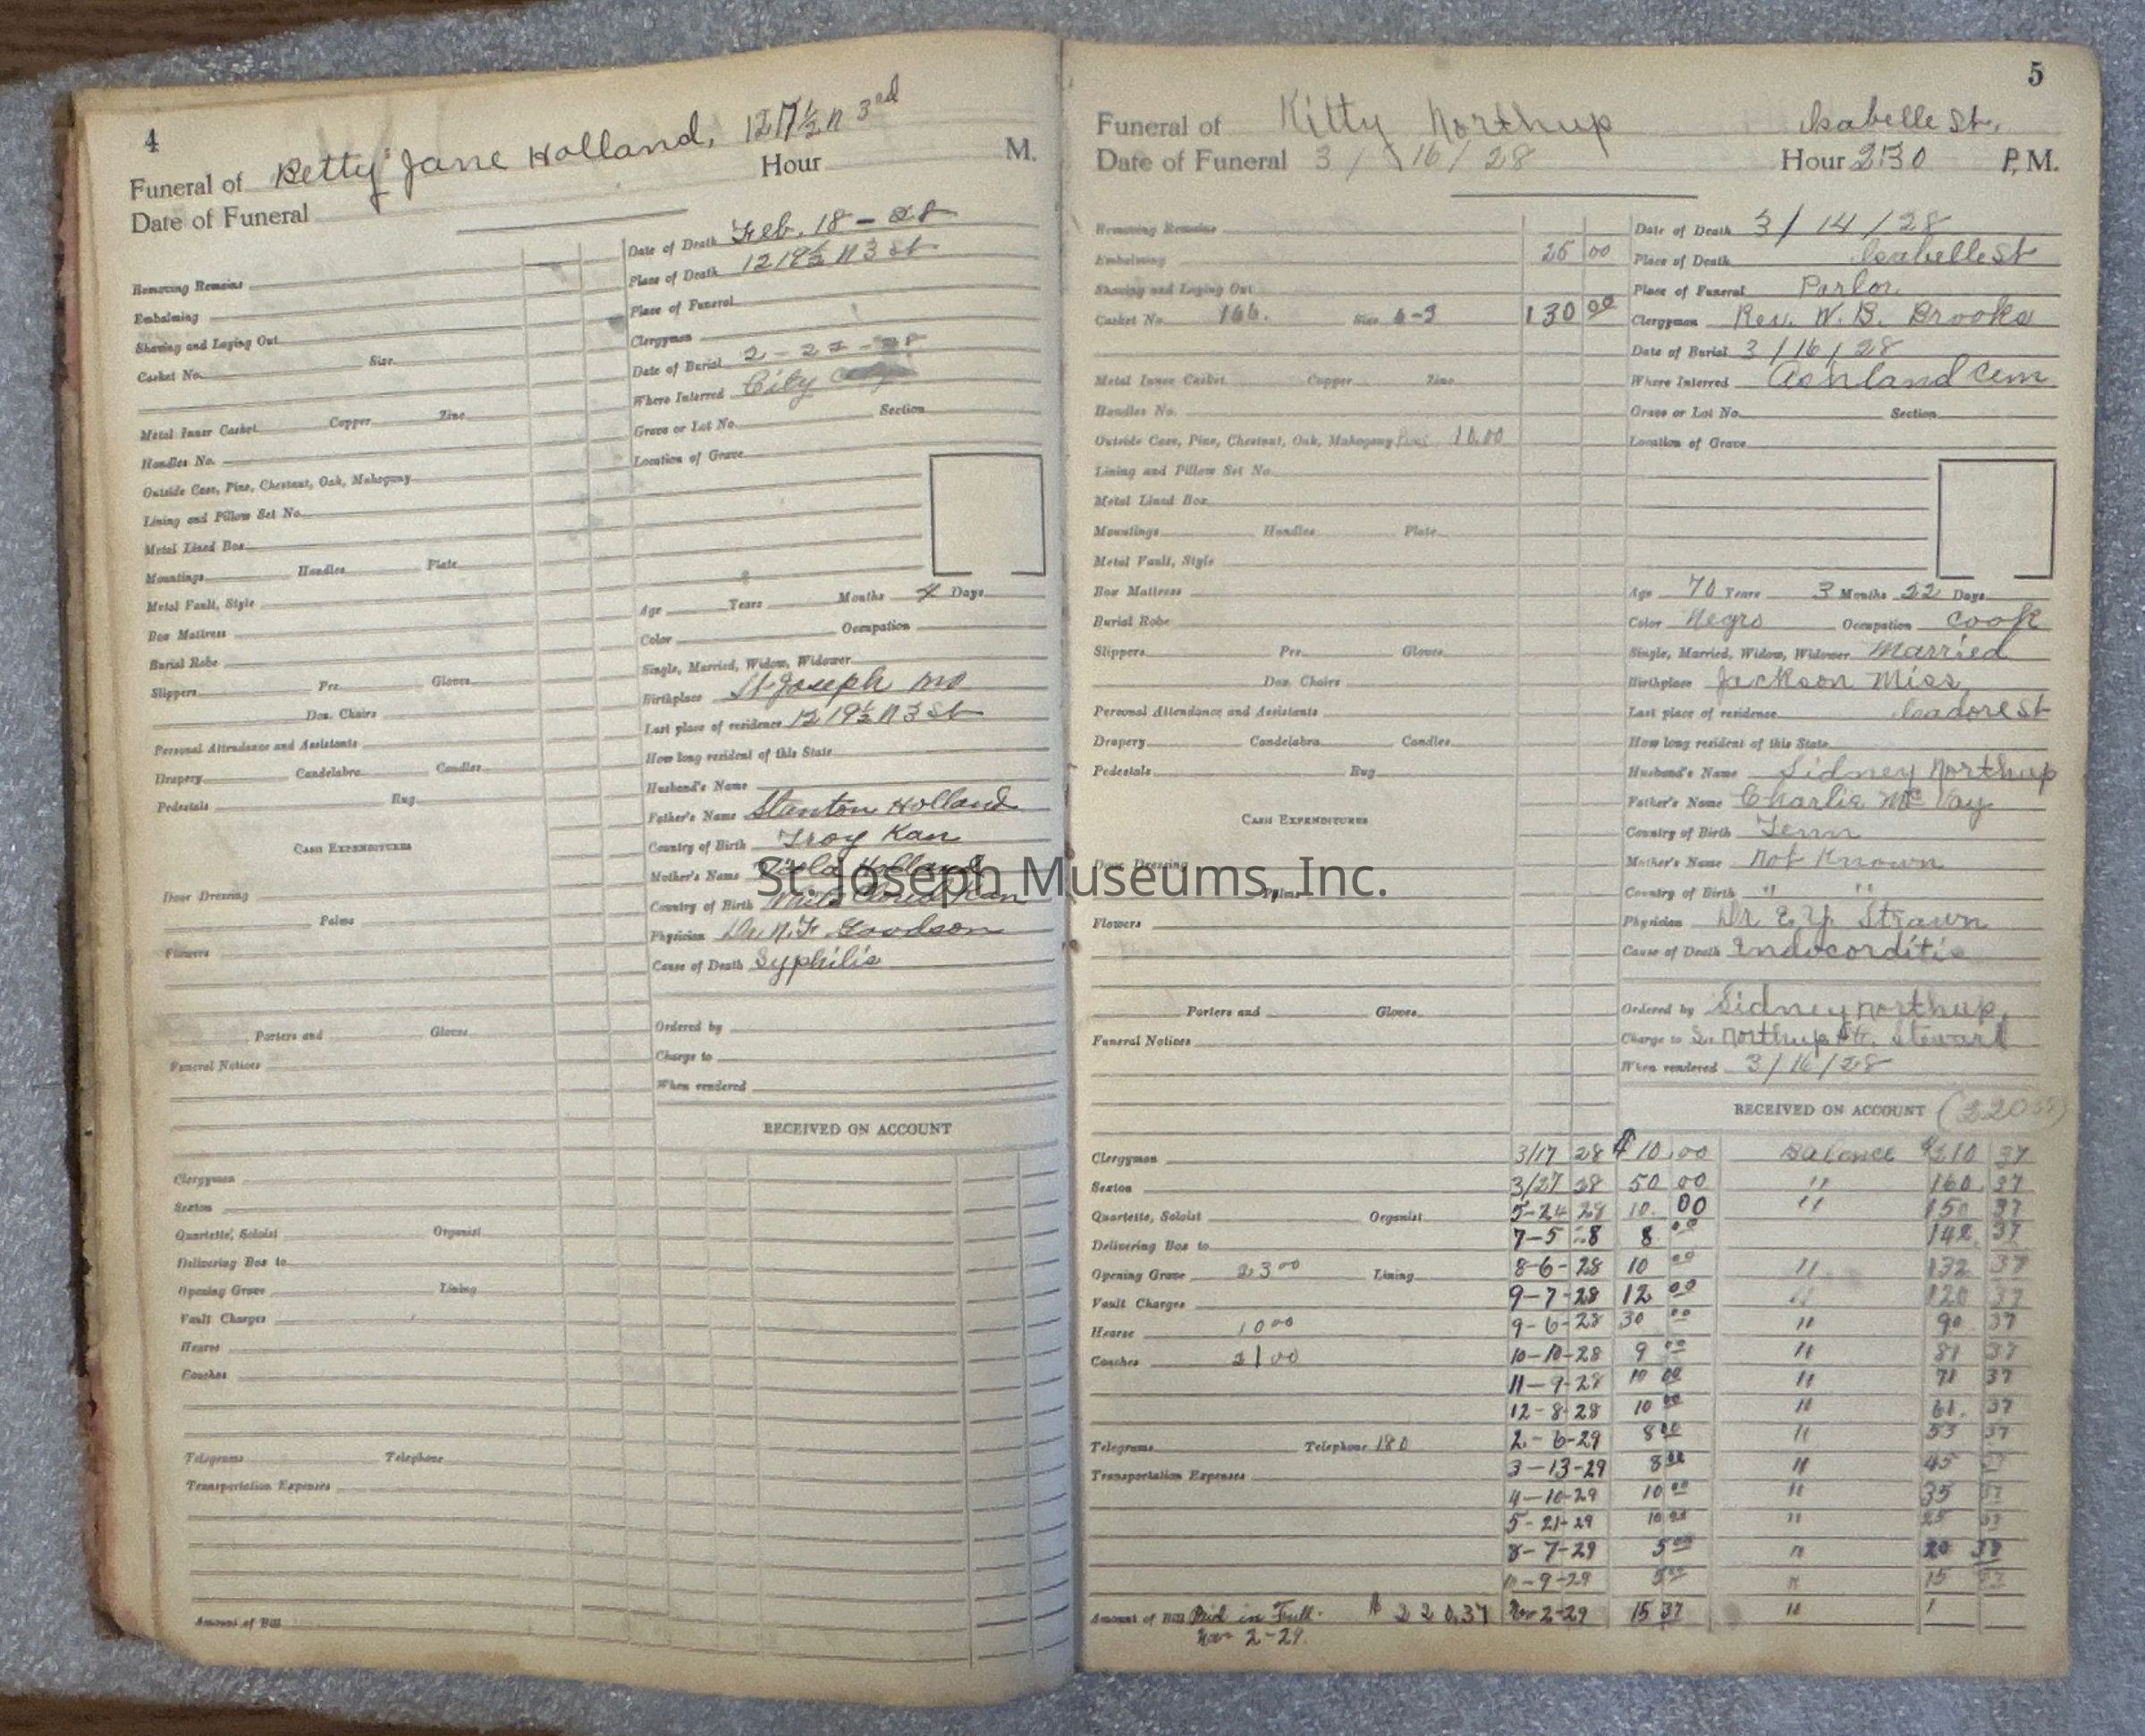 4
Funeral of Betty Jane Holland, 1217½ N 3rd
Date of Funeral Hour M.
Date of Death Feb. 18 - 28
Removing Remains Place of Death 1219½ N 3 St
Embalming Place of Funeral
Shaving and Laying Out Clergyman
Casket No. Size Date of Burial 2 - 2
Where Interred City
Metal Inner Casket Copper Zinc Grave or Lot No. Section
Handles No. Location of Grave
Outside Case, Pine, Chestnut, Oak, Mahogany
Lining and Pillow Set No.
Metal Lined Box
Mountings Handles Plate
Metal Vault, Style Age Years Months Days
Box Mattress Color Occupation
Burial Robe Single, Married, Widow, Widower
Slippers Prs. Gloves Birthplace St. Joseph Mo
Doz. Chairs Last place of residence 1219½ N 3 St
Personal Attendance and Assistants How long resident of this State
Drapery Candelabra Candles Husband's Name
Pedestals Rug Father's Name Stanton Holland
Cash Expenditures Country of Birth Troy Kan
Mother's Name Holland
Door Dressing Country of Birth Kan
Palms Physician Dr. N. F. Goodson
Flowers Cause of Death Syphilis
Porters and Gloves Ordered by
Funeral Notices Charge to
When rendered
RECEIVED ON ACCOUNT
Clergyman
Sexton
Quartette, Soloist Organist
Delivering Box to
Opening Grave Lining
Vault Charges
Hearse
Coaches
Telegrams Telephone
Transportation Expenses
Amount of Bill
5
Funeral of Kitty Northup Isabelle St.
Date of Funeral 3/16/28 Hour 2:30 P. M.
Removing Remains Date of Death 3/14/28
Embalming 25 00 Place of Death Isabelle St
Shaving and Laying Out Place of Funeral Parlor
Casket No. 166. Size 6-3 130 00 Clergyman Rev. W. B. Brooks
Date of Burial 3/16/28
Metal Inner Casket Copper Zinc Where Interred Ashland Cem
Handles No. Grave or Lot No. Section
Outside Case, Pine, Chestnut, Oak, Mahogany 10.00 Location of Grave
Lining and Pillow Set No.
Metal Lined Box
Mountings Handles Plate
Metal Vault, Style
Box Mattress Age 70 Years 3 Months 22 Days
Burial Robe Color Negro Occupation Cook
Slippers Prs. Gloves Single, Married, Widow, Widower Married
Doz. Chairs Birthplace Jackson Miss
Personal Attendance and Assistants Last place of residence St
Drapery Candelabra Candles How long resident of this State
Pedestals Rug Husband's Name Sidney Northup
Father's Name Charlie McVay
Cash Expenditures Country of Birth Tenn
Door Dressing Mother's Name Not Known
Palms Country of Birth " "
Flowers Physician Dr E. Y. Strawn
Cause of Death Endocorditis
Porters and Gloves Ordered by Sidney Northup.
Funeral Notices Charge to S. Northup Stewart
When rendered 3/16/28
RECEIVED ON ACCOUNT
Clergyman 3/17 28 $ 10.00 Balance $210 37
Sexton 3/27 28 50 00 " 160 37
Quartette, Soloist Organist 5-24 28 10. 00 " 150 37
Delivering Box to 7-5 28 8 00 142. 37
Opening Grave 23 00 Lining 8-6-28 10 00 " 132 37
Vault Charges 9-7-28 12 00 " 120 37
Hearse 10 00 9-6-28 30 00 " 90 37
Coaches 21 00 10-10-28 9 00 " 81 37
11-9-28 10 00 " 71 37
12-8-28 10 00 " 61. 37
Telegrams Telephone 180 2-6-29 8 00 " 53 37
Transportation Expenses 3-13-29 8 00 " 45 37
4-10-29 10 00 " 35 37
5-21-29 10 00 " 25 37
8-7-29 5 00 " 20 37
-9-29 5 00 " 15 37
Amount of Bill Paid in Full. $ 220.37 Nov 2-29 15 37 "
Nov 2-29.
St. Joseph Museums, Inc.